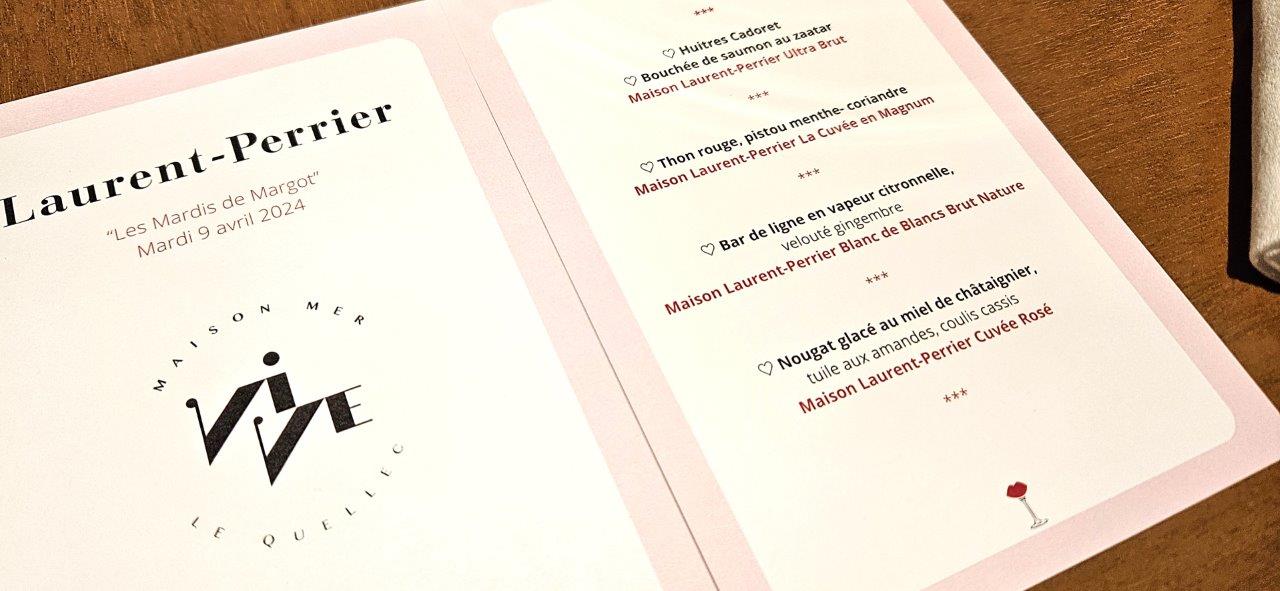 Laurent-Perrier
“Les Mardis de Margot”
Mardi 9 avril 2024
MAISON MER
VIVE
LE QUELLEC
***
♡ Huitres Cadoret
♡ Bouchée de saumon au zaatar
Maison Laurent-Perrier Ultra Brut
***
♡ Thon rouge, pistou menthe- coriandre
Maison Laurent-Perrier La Cuvée en Magnum
***
♡ Bar de ligne en vapeur citronnelle,
velouté gingembre
Maison Laurent-Perrier Blanc de Blancs Brut Nature
***
♡ Nougat glacé au miel de châtaignier,
tuile aux amandes, coulis cassis
Maison Laurent-Perrier Cuvée Rosé
***